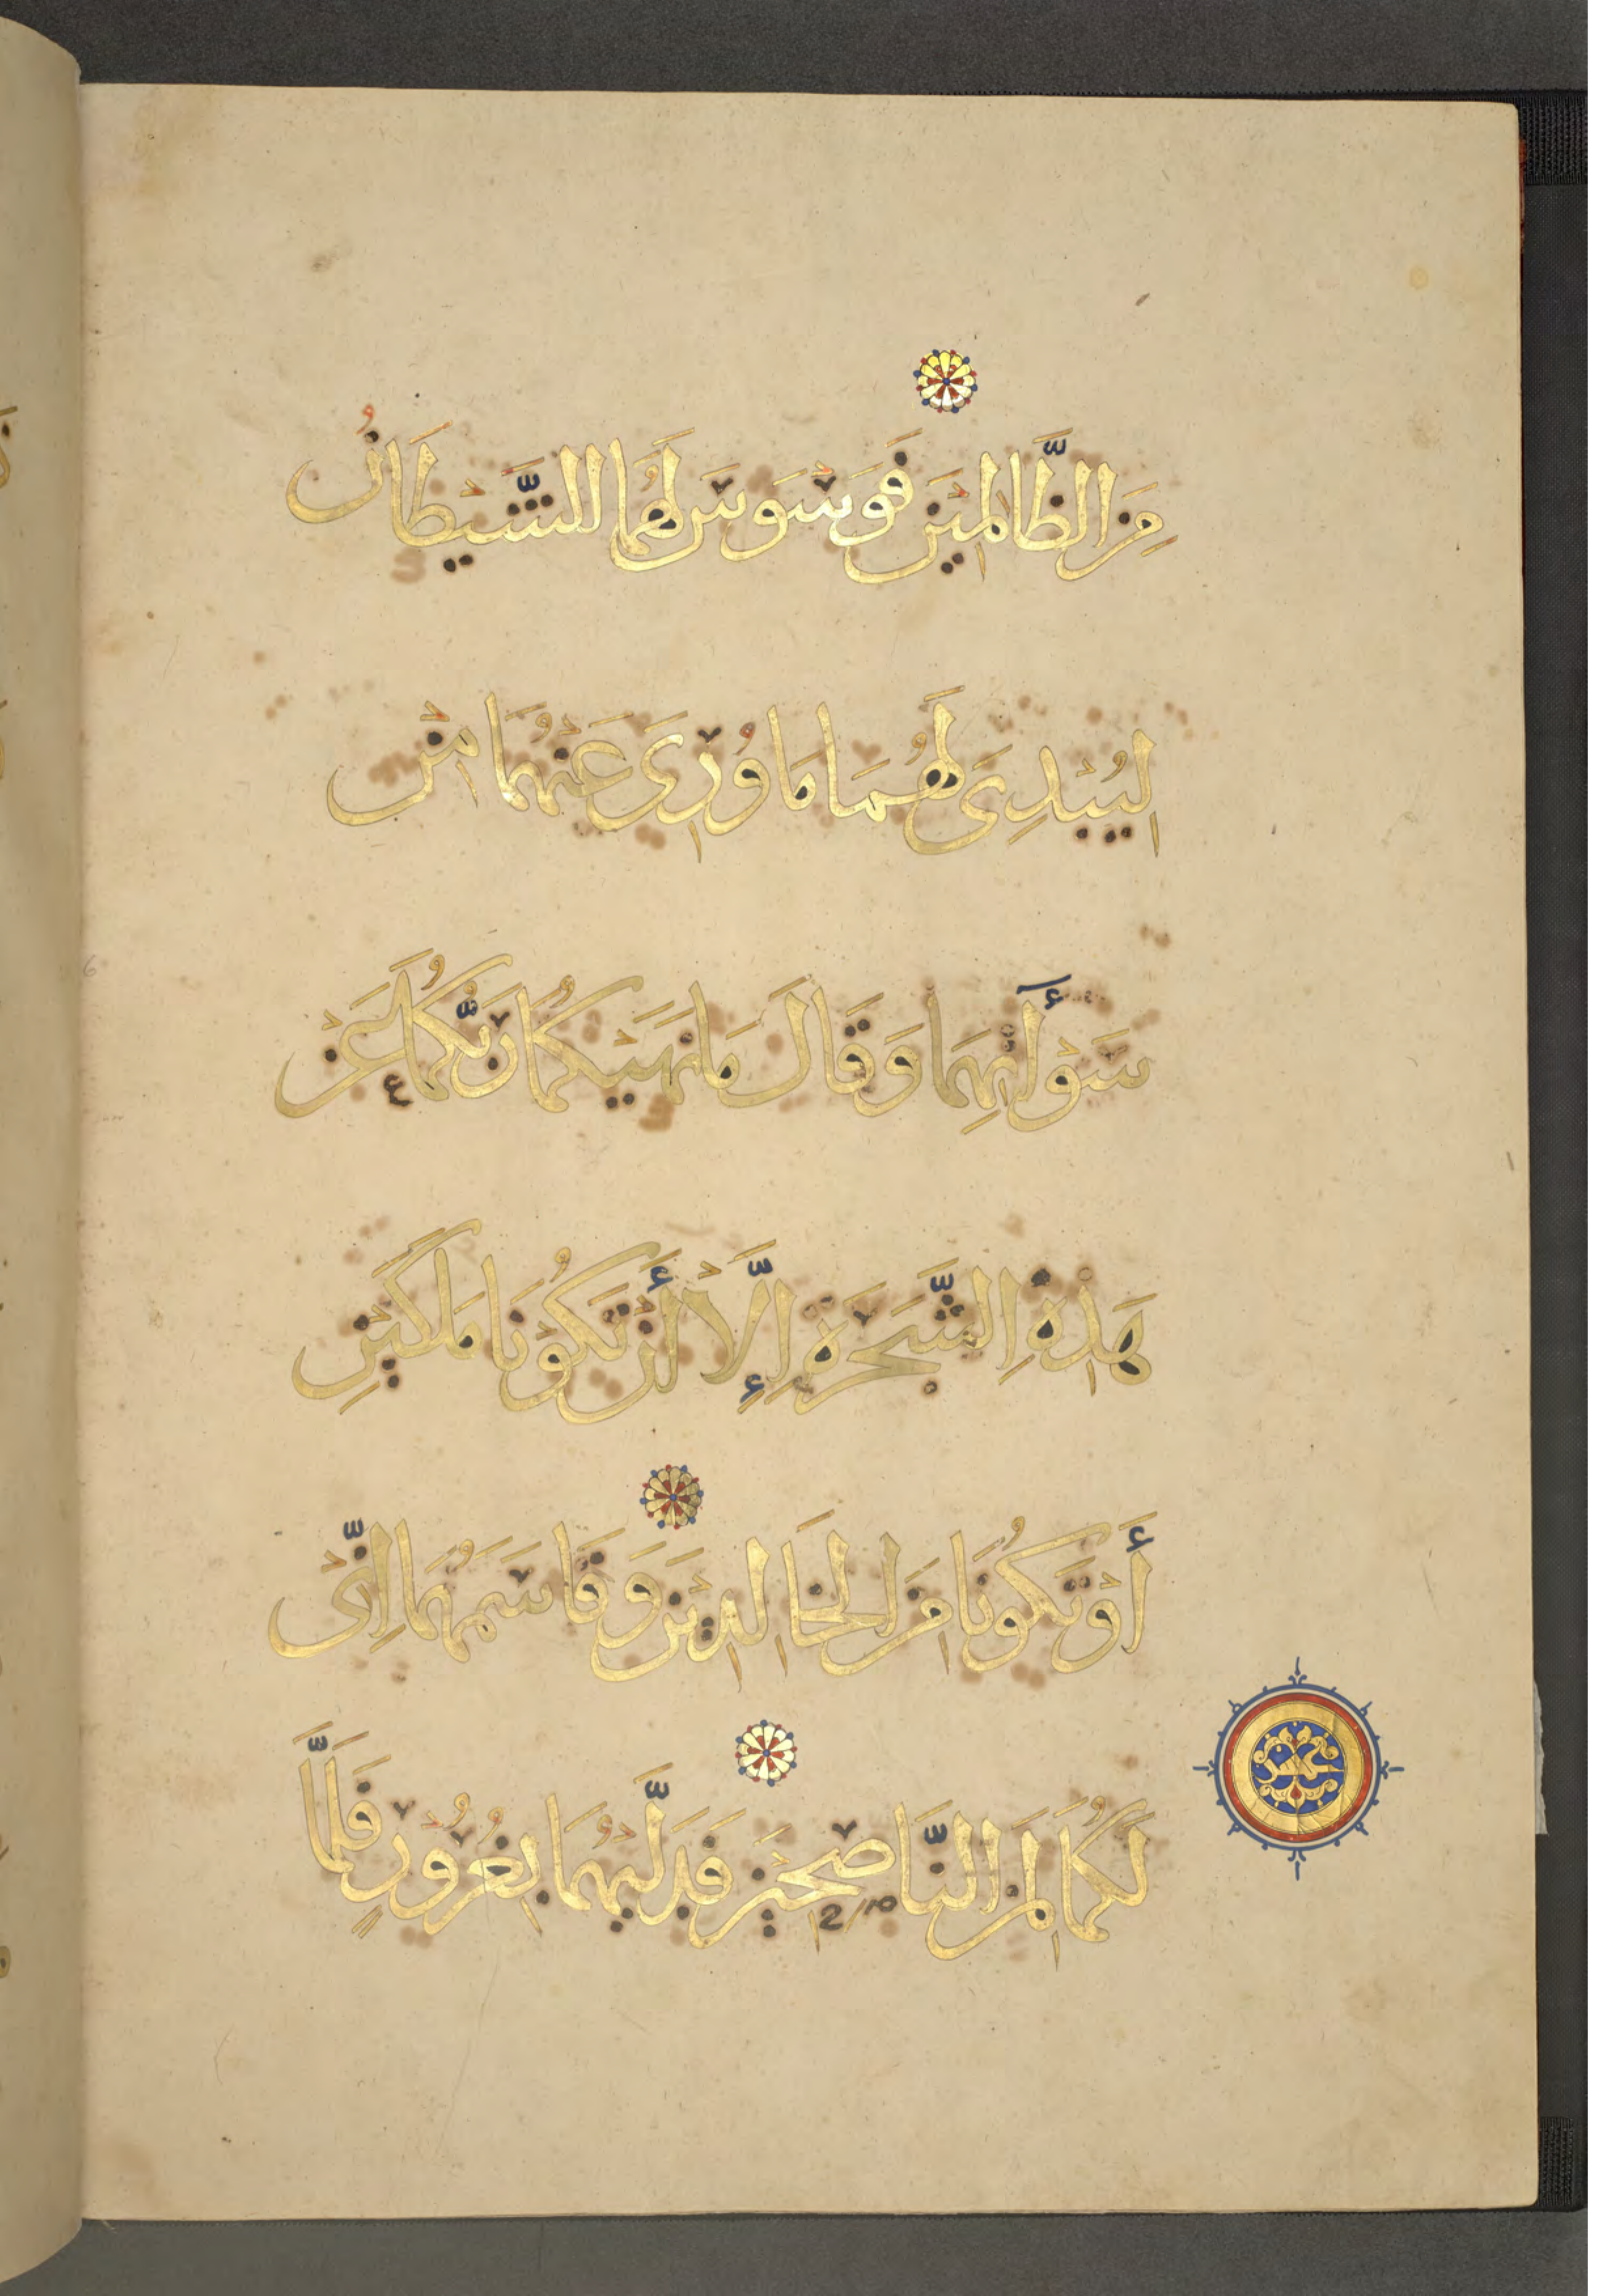 مِنَ الظَّالِمِيْنَ فَوَسْوَسَ لَهُمَا الشَّيْطَانُ
لِيُبْدِيَ لَهُمَا مَا وُرِيَ عَنْهُمَا مِنْ
سَوْآتِهِمَا وَقَالَ مَا نَهَيْكُمَا رَبُّكُمَا عَنْ
هَذِهِ الشَّجَرَةِ إِلَّا أَنْ تَكُوْنَا مَلَكَيْنِ
أَوْ تَكُوْنَا مِنَ الْخَالِدِيْنَ وَقَاسَمَهُمَا اِنِّي
لَكُمَا لَمِنَ النَّاصِحِيْنَ فَدَلَّيهُمَا بِغُرُوْرٍ فَلَمَّا